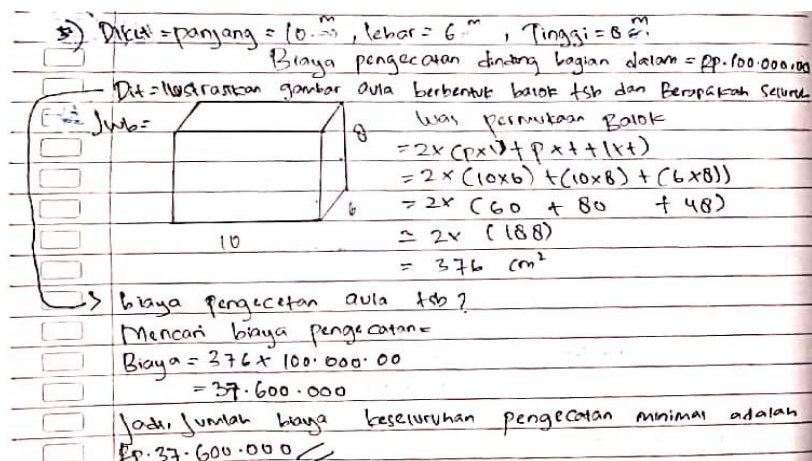 5) Diket = panjang = 10 m, lebar = 6 m, Tinggi = 8 m.
Biaya pengecatan dinding bagian dalam = Rp. 100.000,00
Dit = Ilustrasikan gambar aula berbentuk balok tsb dan Berapakah Seluruh
Jwb =
8
6
10
luas permukaan Balok
= 2 x (p x l) + p x t + l x t)
= 2 x (10 x 6) + (10 x 8) + (6 x 8))
= 2 x (60 + 80 + 48)
= 2 x (188)
= 376 cm²
biaya pengecetan aula tsb ?
Mencari biaya pengecatan =
Biaya = 376 x 100.000.00
= 37.600.000
Jadi, Jumlah biaya keseluruhan pengecatan minimal adalah
Rp. 37.600.000